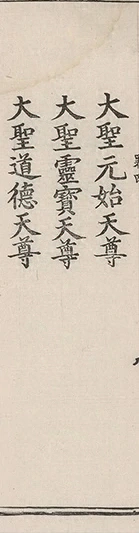 大聖元始天尊
大聖靈寶天尊
大聖道德天尊